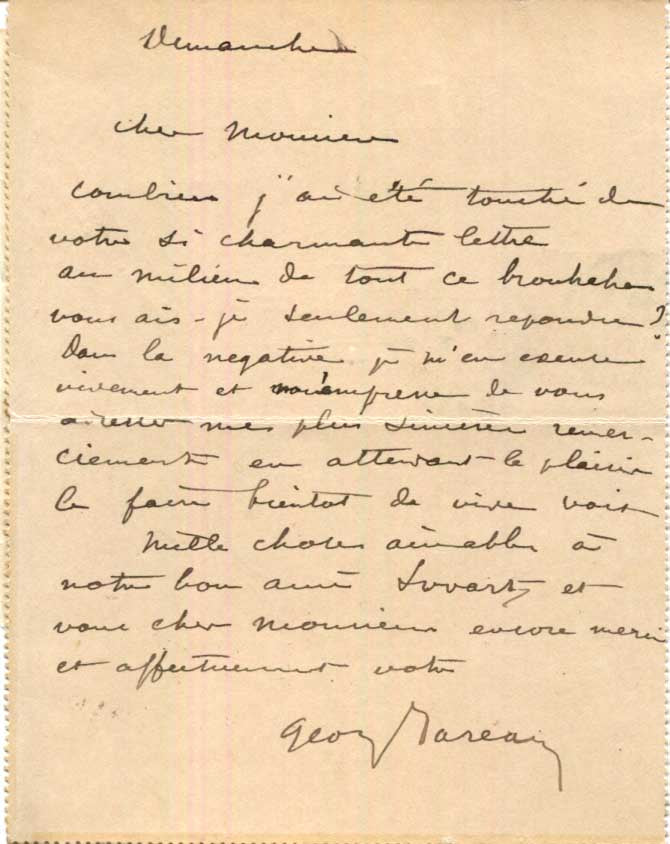 Demanche
cher Monsieur
combien j'ai été touché de
votre si charmante lettre
au milieu de tout ce brouhaha
vous ais-je seulement repondre?
Dans la negative je m'en excuse
vivement et m'empresse de vous
adresser mes plus sincères remer-
ciements en attendant le plaisir
le faire bientot de vive voix
Mille choses aimables à
notre bon ami et
vous cher monsieur encore merci
et affectueusement votre
Georg